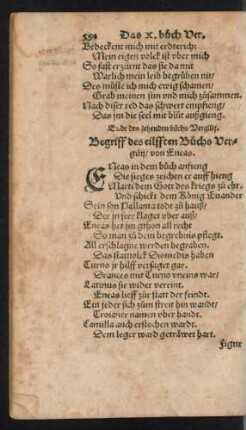 594 Das X. bůch Ver.
Bedeckent mich mit erdterich:
Mein eigen volck ist vber mich
So fast erzürnt das sie da mit
Warlich mein leib begrůben nit/
Des můste ich mich ewig schamen/
Grab meinen sun vnd mich zůsammen.
Nach diser red das schwert empfieng/
Das jm die seel mit blůt außgieng.
Ende des zehenden bůchs Vergilij.
Begriff des eilfften Bůchs Ver-
gilij/ von Eneas.
ENeas in dem bůch anfieng
Die sieges zeichen er auff hieng
Marti dem Gott des kriegs zů ehr.
Vnd schickt dem König Euander
Sein son Pallanta todt zů hauß/
Der in seer klaget vber auß/
Eneas het im gthon all recht
So man zů dem begrebnis pflegt.
All erschlagne werden begraben.
Das statuolck Diomedis haben
Turno jr hilff versaget gar.
Drances mit Turno vneins war/
Latinus sie wider vereint.
Eneas lieff zůr statt der feindt.
Ein jeder sich zům streit hin wandt/
Troianer namen vber handt.
Camilla auch erstochen wardt.
Dem leger ward geträwet hart.
Figur